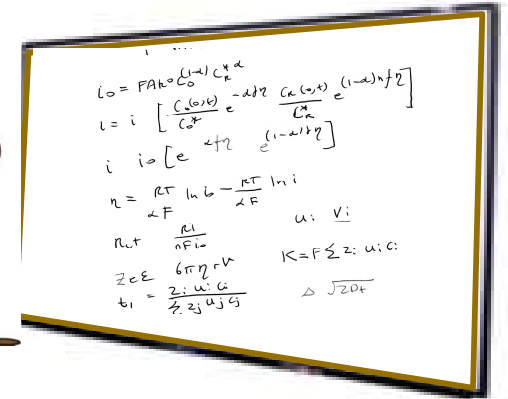 i₀ = FAk⁰ C₀^(1-α) C_R^*α
i = i [ C₀(0,t)/C₀* e^-αfη C_R(0,t)/C_R* e^(1-α)nfη ]
i i₀ [ e αfη e^(1-α)fη ]
η = RT/αF ln i₀ − RT/αF ln i
R_ct RT/nFi₀
u_i V_i
K = F Σ z_i u_i c_i
zeE 6πηrV
t₁ = z_i u_i c_i / Σ z_j u_j c_j
Δ √2Dt